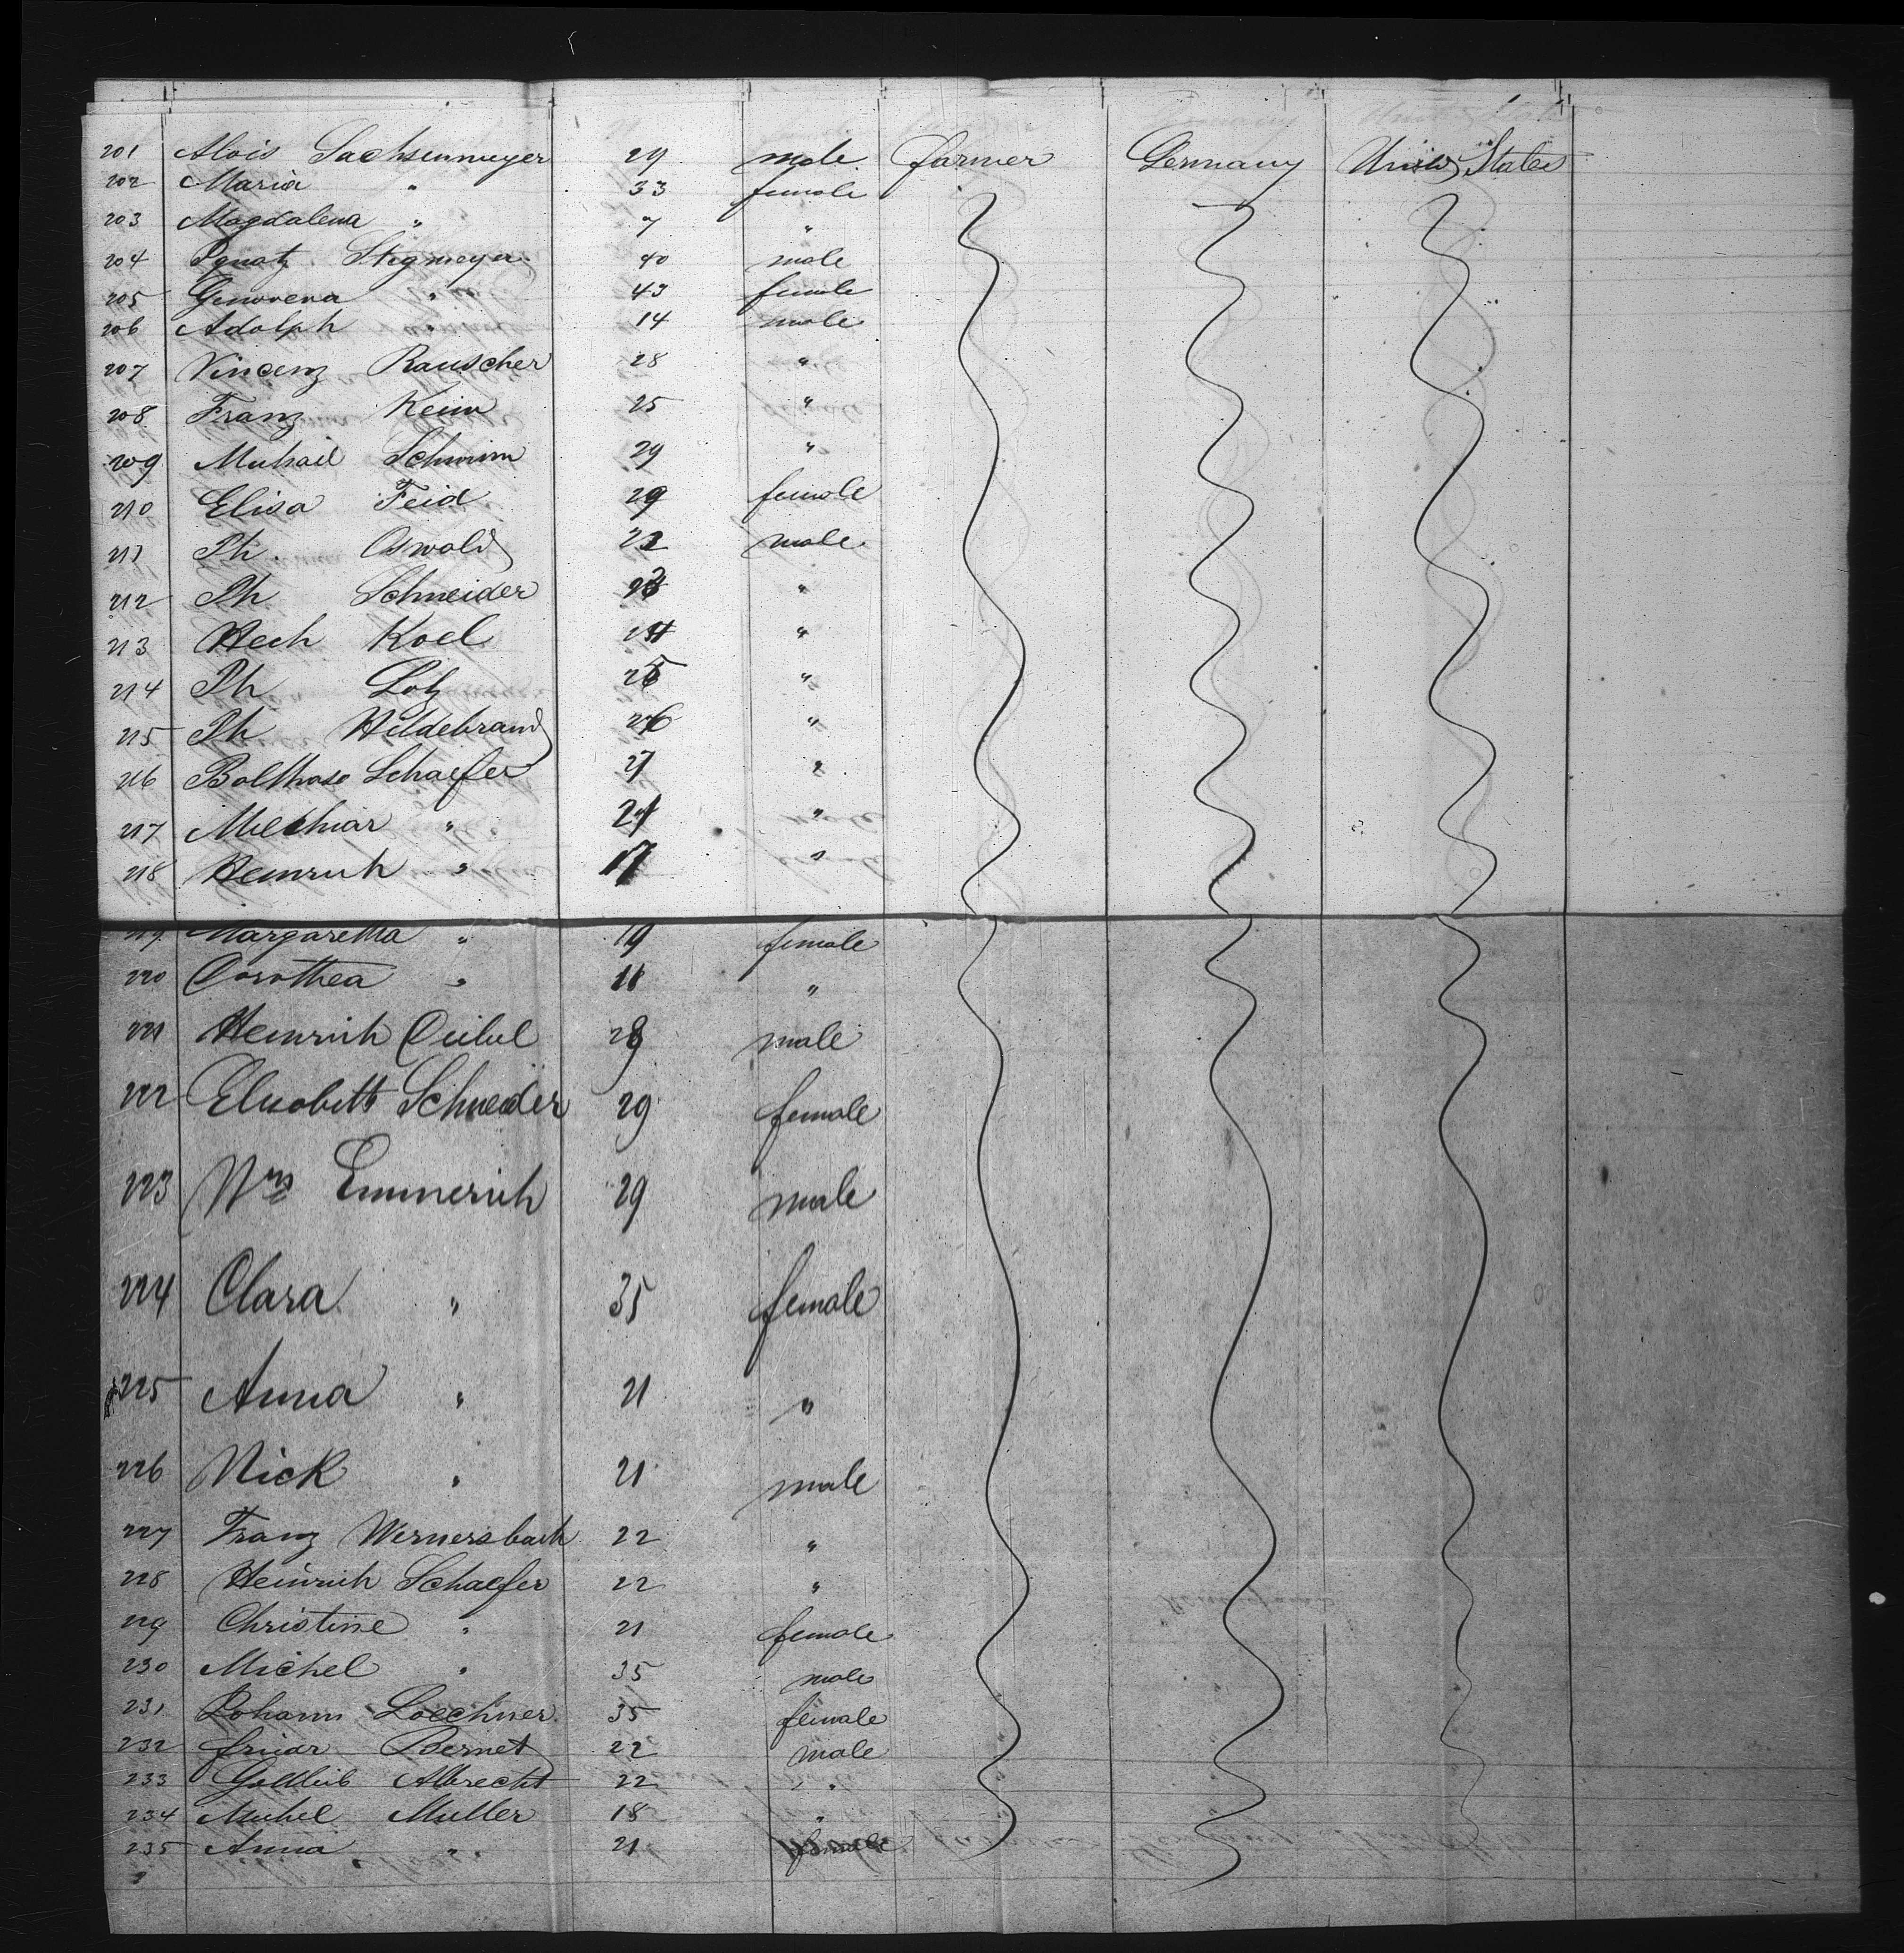 201 Alois Sachsenmeyer 29 male farmer Germany United States
202 Maria " 33 female
203 Magdalena " 7 "
204 Ignatz Stegmeyer 40 male
205 Genovena " 43 female
206 Adolph 14 male
207 Vincenz Rauscher 28 "
208 Franz Keim 25 "
209 Michael Schwinn 29 "
210 Elisa Feid 29 female
211 Ph. Oswald 22 male
212 Ph Schneider "
213 Hech Koel 24 "
214 Ph Lotz 25 "
215 Ph Hildebrand 26 "
216 Balthase Schaefer 27 "
217 Melchior " 21 "
218 Heinrich " 17 "
219 Margaretha " 19 female
220 Dorothea " 11 "
221 Heinrich 28 male
222 Elisabeth Schneider 29 female
223 Wm Emmerich 29 male
224 Clara " 35 female
225 Anna " 21 "
226 Nick " 21 male
227 Franz Wernersbach 22 "
228 Heinrich Schaefer 22 "
229 Christine " 21 female
230 Michel " 35 male
231 Johann Loechner 35 female
232 Bernet 22 male
233 Gottlieb Albrecht 22 "
234 Michel Muller 18 "
235 Anna " 21 female